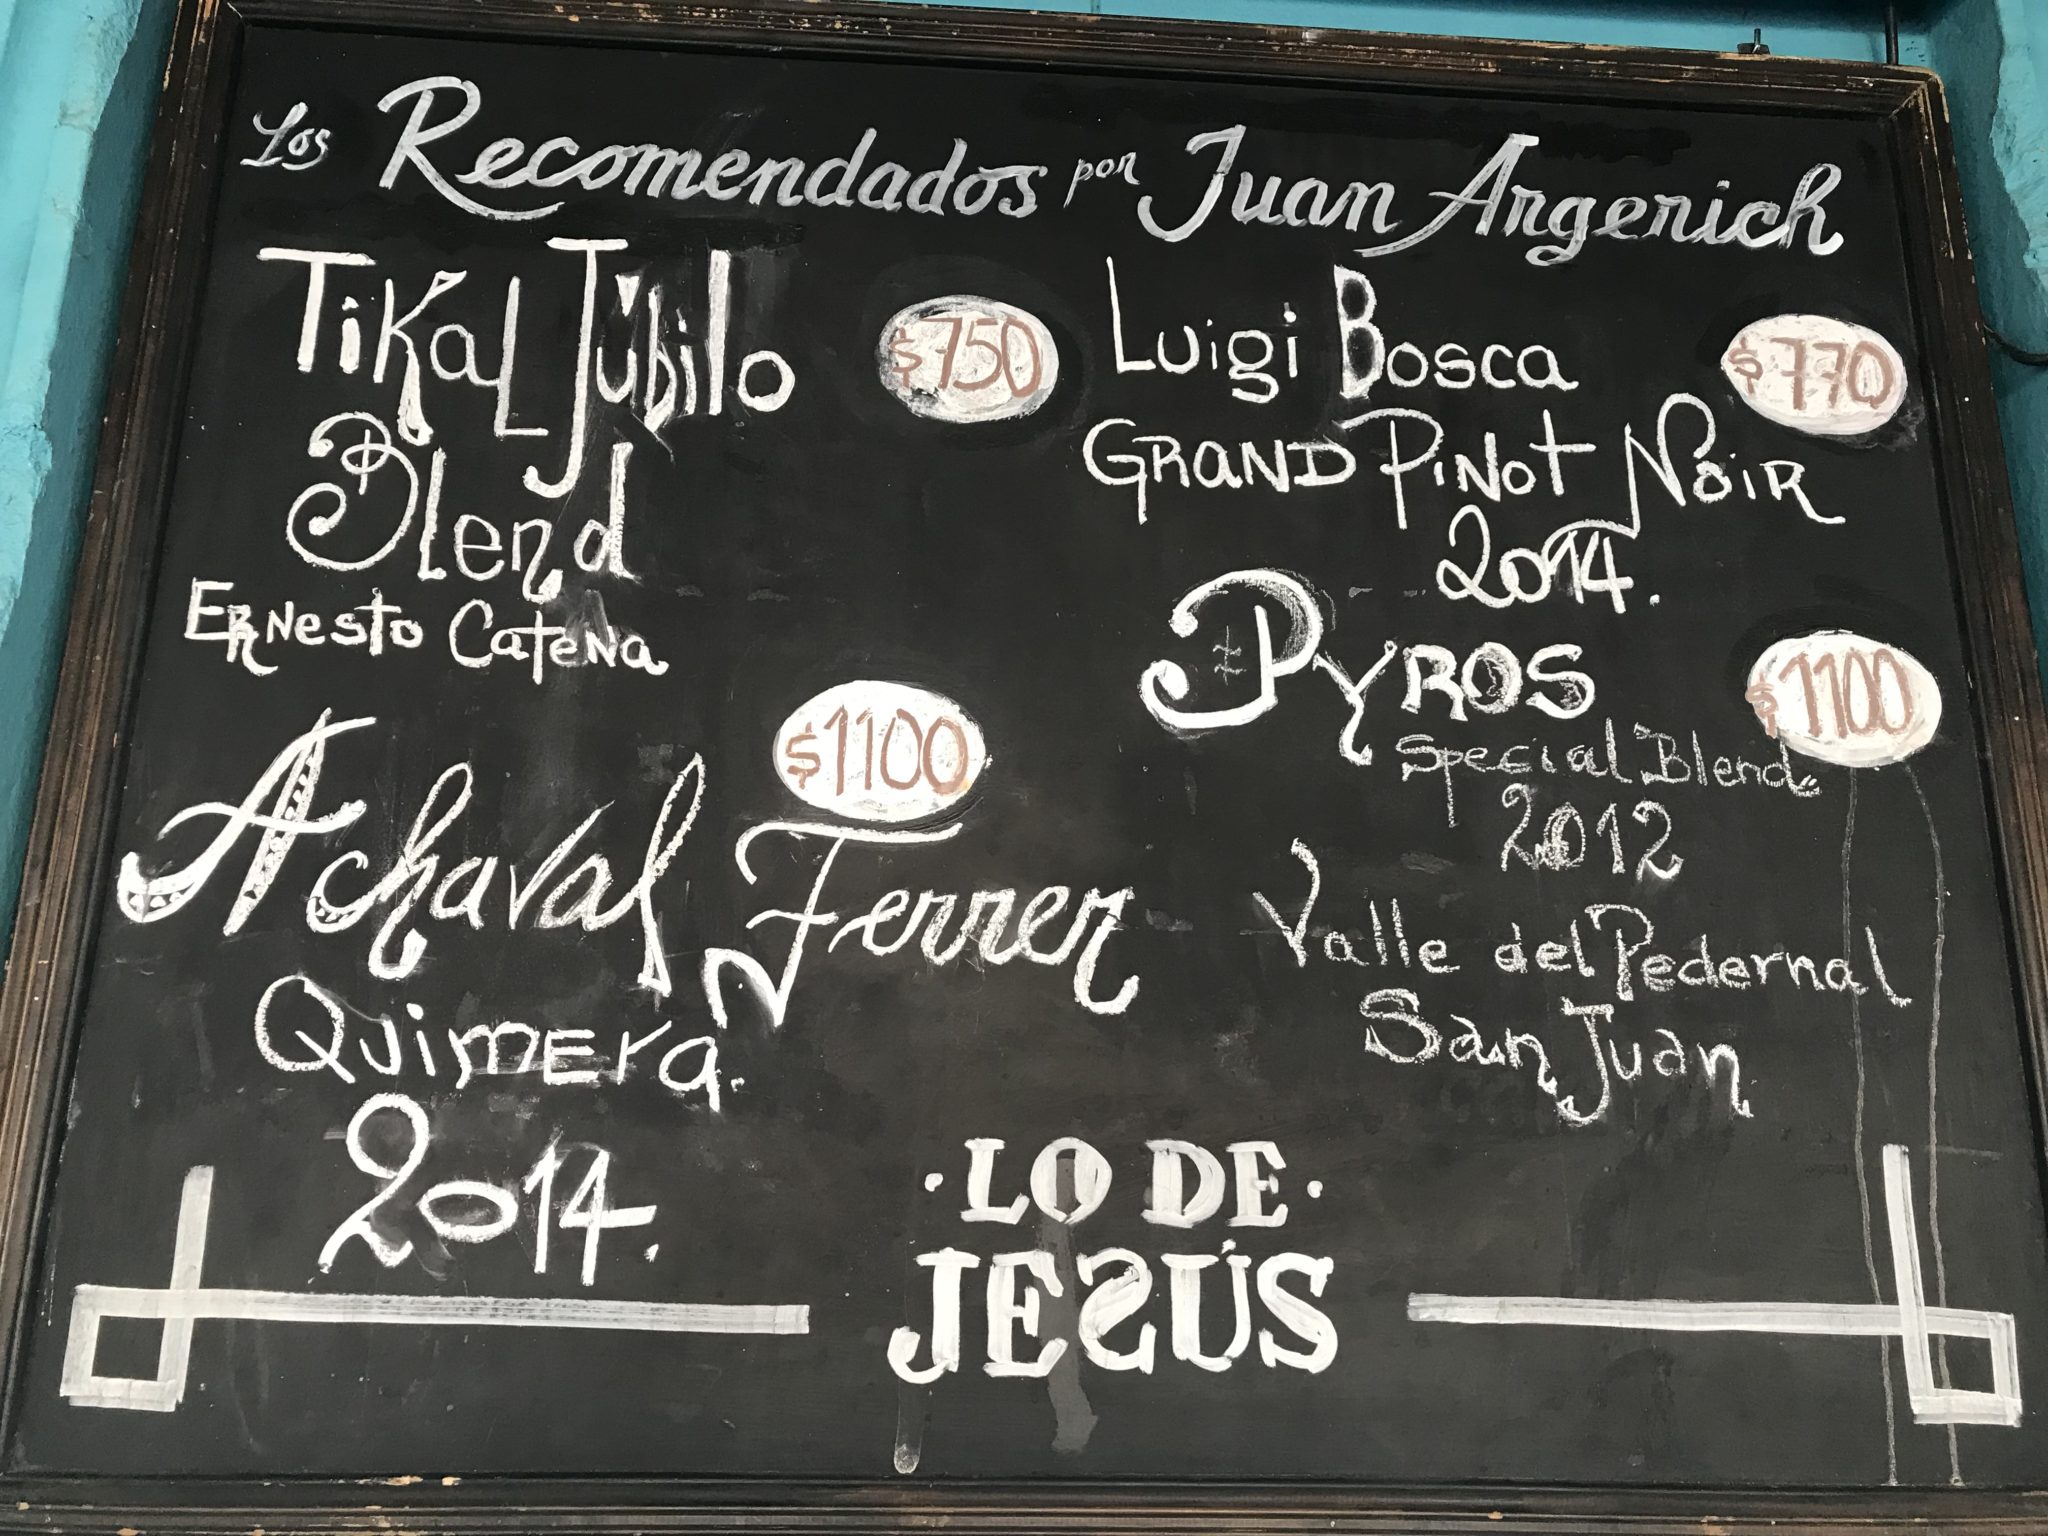 Los Recomendados por Juan Argerich
Tikal Júbilo
$750
Blend
Ernesto Catena
$1100
Achaval Ferrer
Quimera.
2014.
Luigi Bosca
$770
GRAND PINOT NOIR
2014.
PYROS
$1100
Special Blend
2012
Valle del Pedernal
San Juan
· LO DE ·
JESÚS